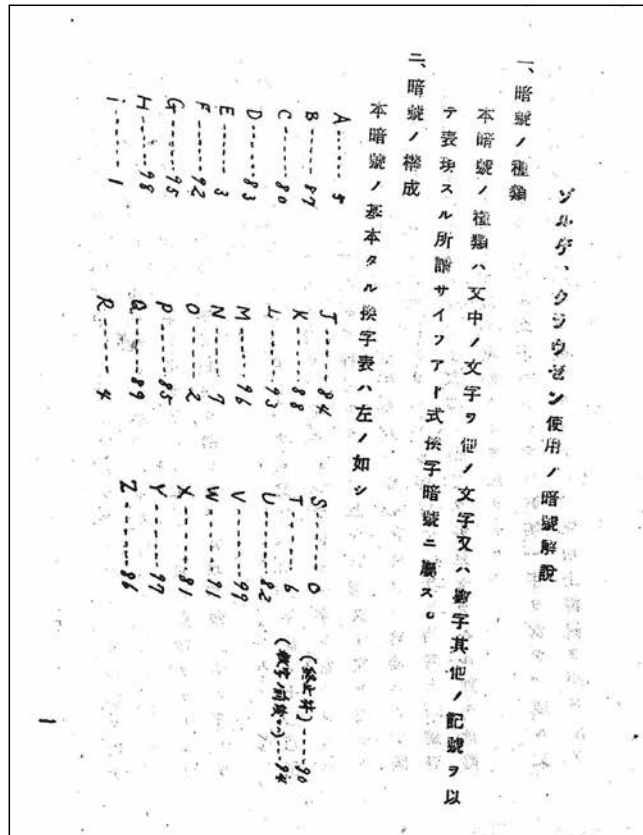 ゾルゲ、クラウゼン使用ノ暗號解説
一、暗號ノ種類
本暗號ノ種類ハ文中ノ文字ヲ他ノ文字又ハ數字其他ノ記號ヲ以
テ表現スル所謂サイフアー式換字暗號ニ屬ス。
二、暗號ノ構成
本暗號ノ基本タル換字表ハ左ノ如シ
A------5
B------87
C------80
D------83
E------3
F------92
G------95
H------98
i------1
J------84
K------88
L------93
M------96
N------7
O------2
P------85
Q------89
R------4
S------0
T------6
U------82
V------99
W------91
X------81
Y------97
Z------86
(終止符)----90
(数字ノ前後ヘ)----94
1